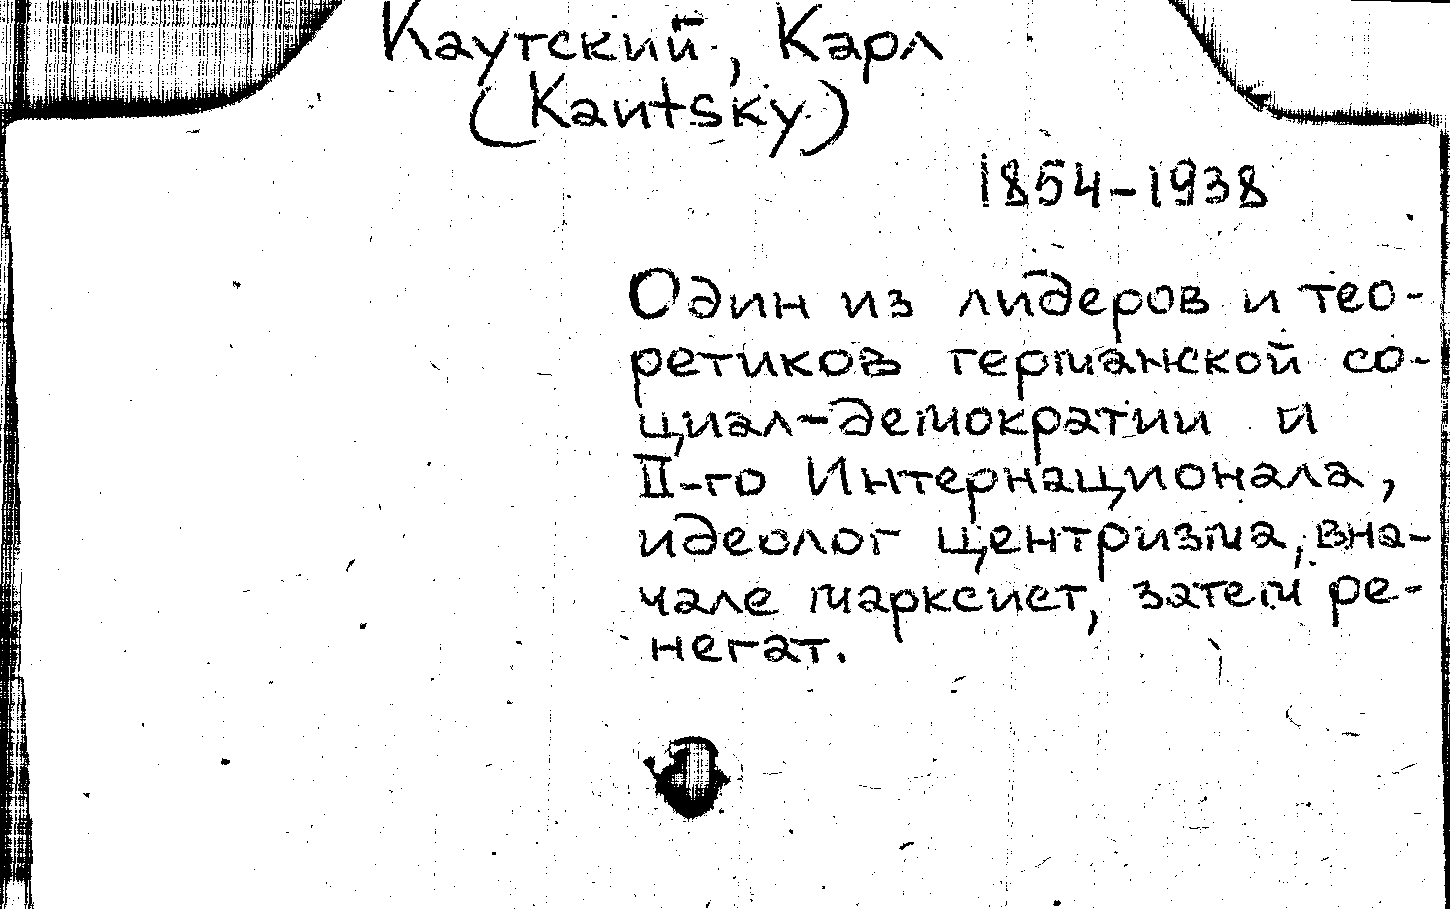 Каутский, Карл
(Kautsky)
1854-1938
Один из лидеров и тео-
ретиков германской со-
циал-демократии и
II-го Интернационала,
идеолог центризма, вна-
чале марксист, затем ре-
негат.